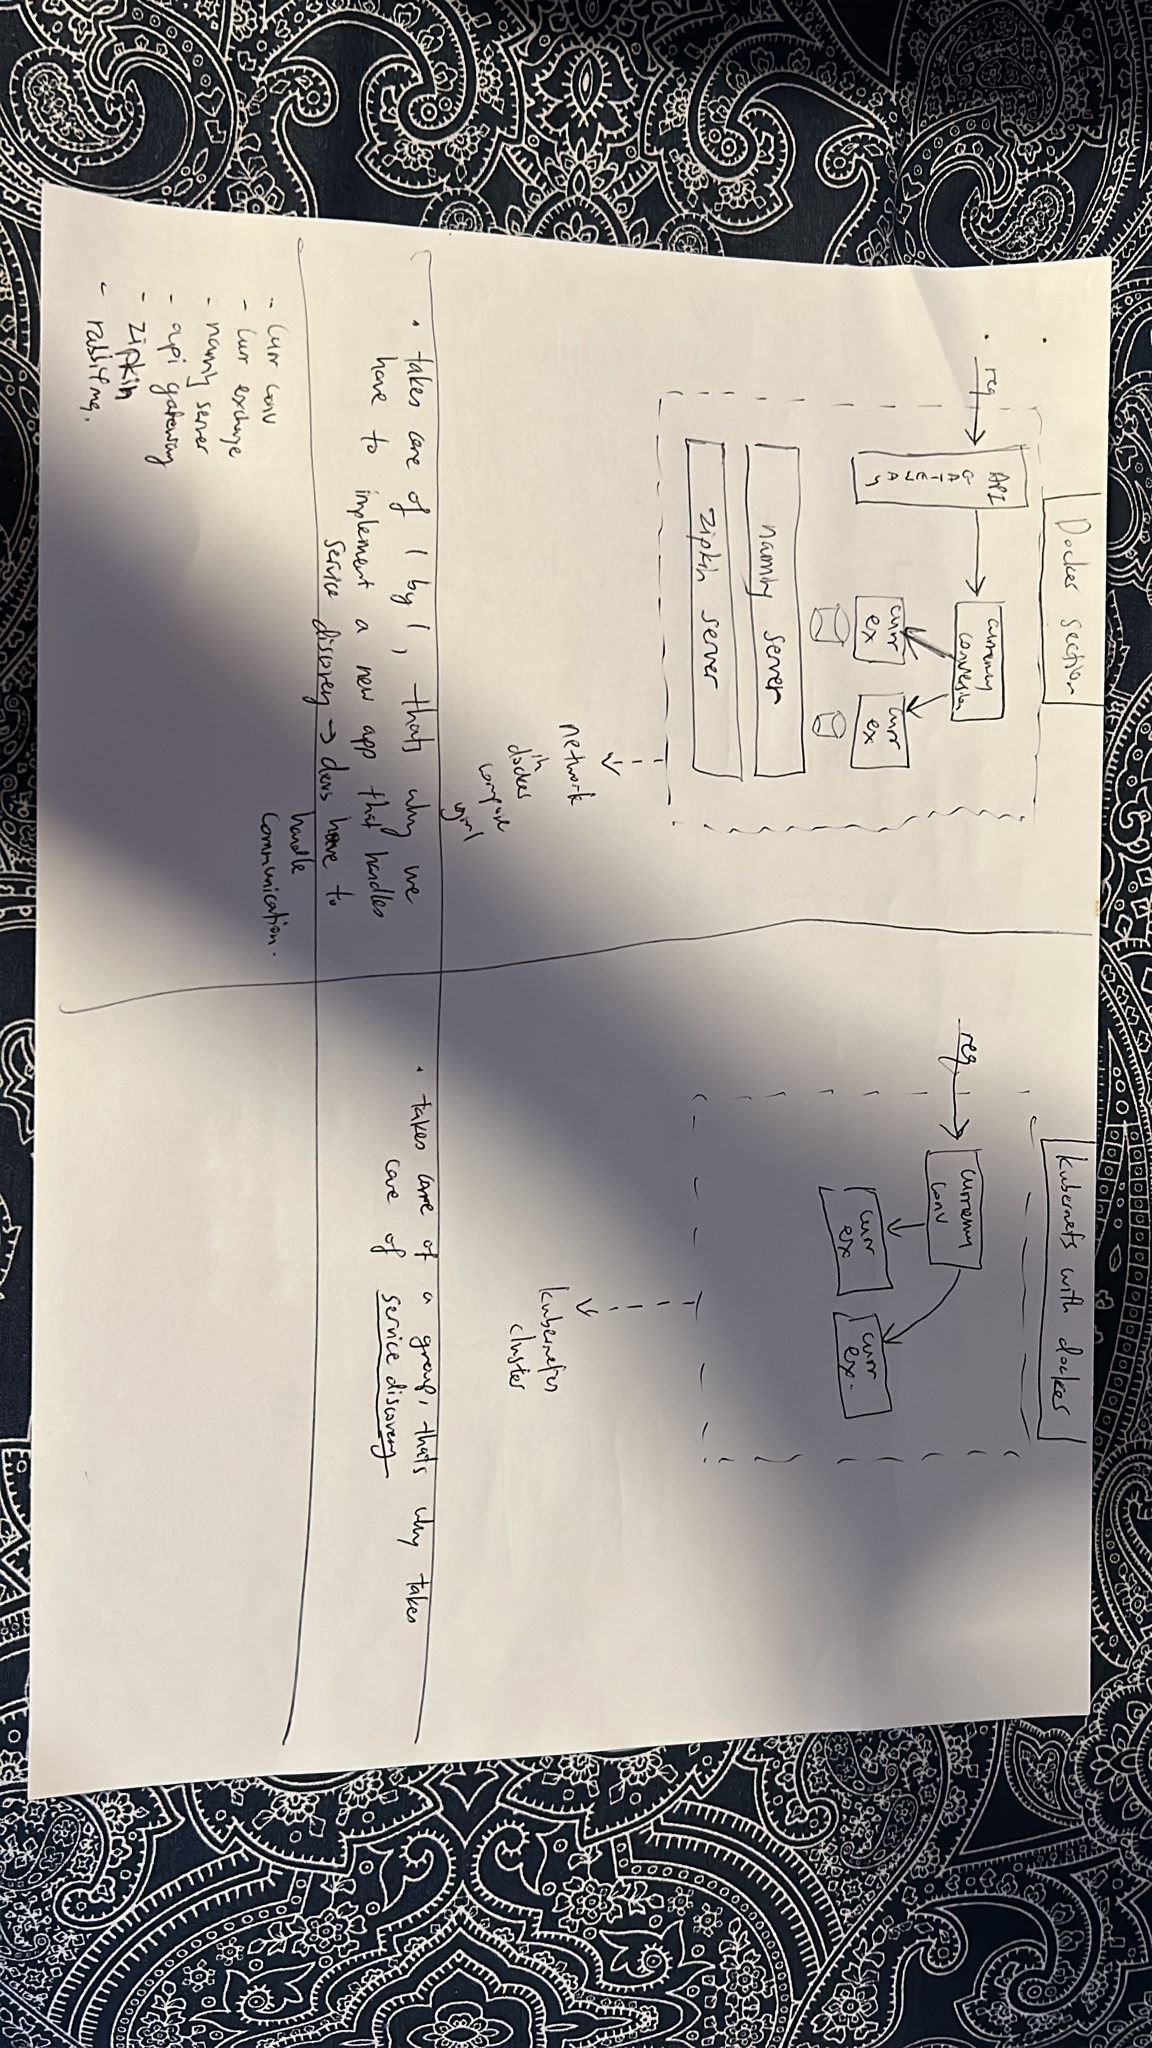 Docker section
req
API
GATEWAY
currency
conversion
curr
ex
curr
ex
naming server
zipkin server
network
in
docker
compose
yaml
• takes care of 1 by 1, thats why we
have to implement a new app that handles
service discovery → devs have to
handle
communication.
- curr conv
- curr exchange
- naming server
- api gateway
- zipkin
- rabbitmq.
kubernets with docker
req
currency
conv
curr
ex
curr
ex.
kubernetes
cluster
• takes care of a group, thats why takes
care of service discovery